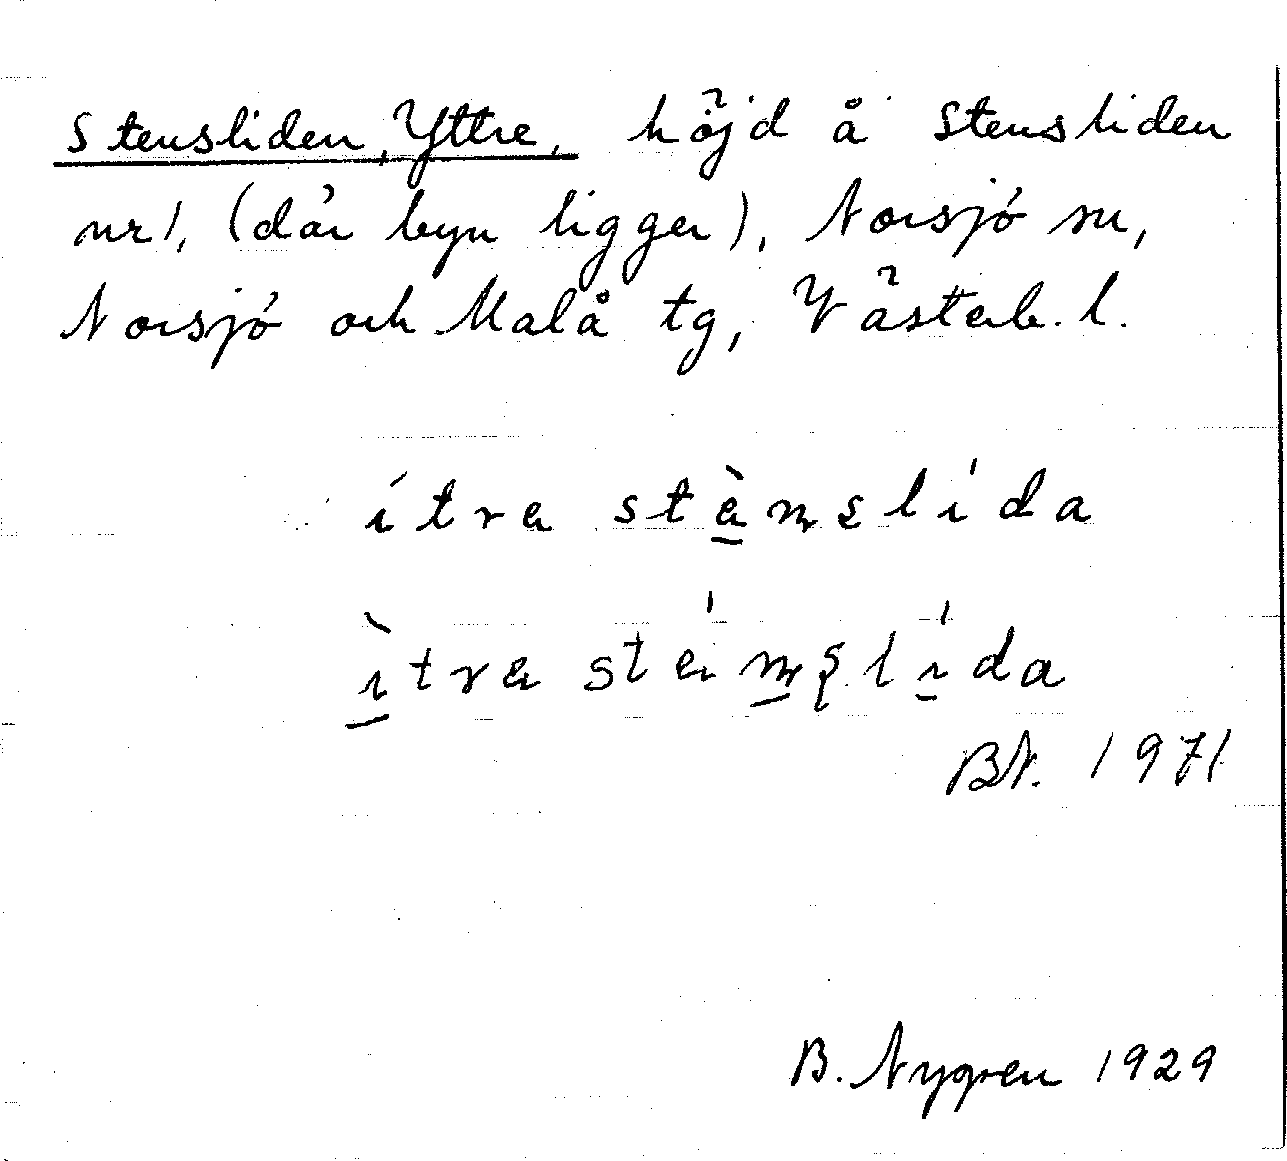 Stensliden, Yttre, höjd å Stensliden
nr 1, (där byn ligger), Norsjö sn,
Norsjö och Malå tg, Västerb. l.
ítra stæ̀nslída
ìtra stǽnslída
BN. 1971
B. Nygren 1929